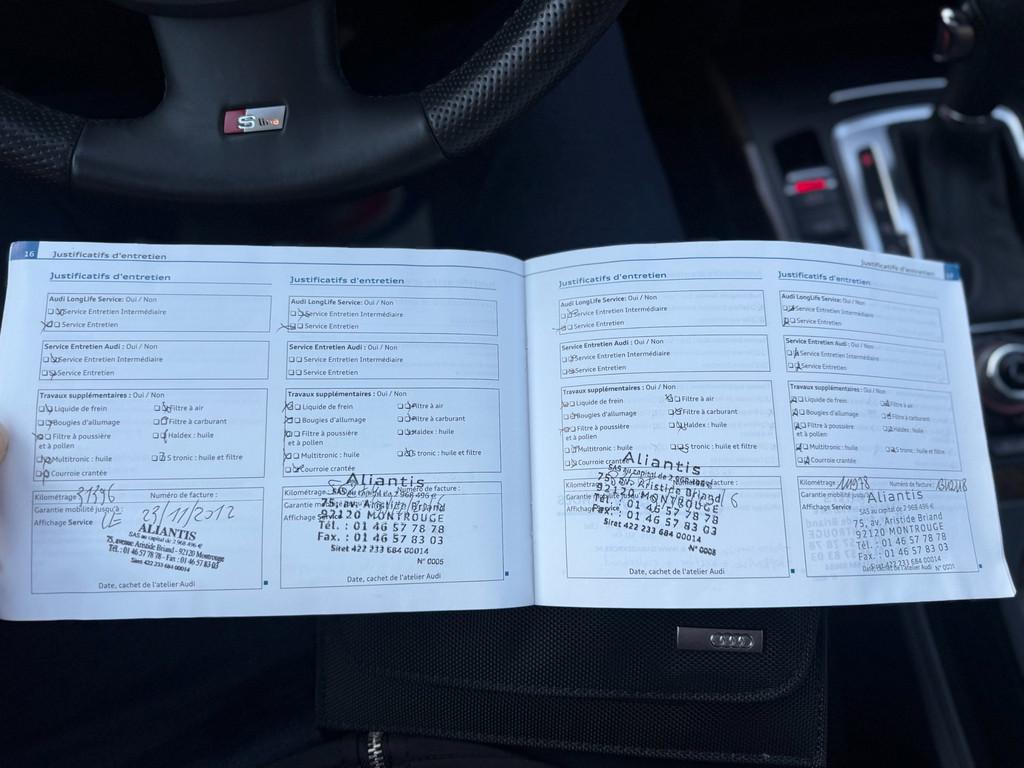 S line
16 Justificatifs d'entretien
Justificatifs d'entretien
Audi LongLife Service: Oui / Non
Service Entretien Intermédiaire
Service Entretien
Service Entretien Audi : Oui / Non
Service Entretien Intermédiaire
Service Entretien
Travaux supplémentaires : Oui / Non
Liquide de frein
Filtre à air
Bougies d'allumage
Filtre à carburant
Filtre à poussière
et à pollen
Haldex : huile
Multitronic : huile
S tronic : huile et filtre
Courroie crantée
Kilométrage 31396 Numéro de facture :
Garantie mobilité jusqu'à :
Affichage Service 23/11/2012
ALIANTIS
SAS au capital de 2 968 496 €
75, avenue Aristide Briand - 92120 Montrouge
Tél. : 01 46 57 78 78 - Fax : 01 46 57 83 03
Siret 422 233 684 00014
Date, cachet de l'atelier Audi
Justificatifs d'entretien
Audi LongLife Service: Oui / Non
Service Entretien Intermédiaire
Service Entretien
Service Entretien Audi : Oui / Non
Service Entretien Intermédiaire
Service Entretien
Travaux supplémentaires : Oui / Non
Liquide de frein
Filtre à air
Bougies d'allumage
Filtre à carburant
Filtre à poussière
et à pollen
Haldex : huile
Multitronic : huile
S tronic : huile et filtre
Courroie crantée
Kilométrage Numéro de facture :
Garantie mobilité
Affichage
Aliantis
SAS au capital de 2 968 496 €
75, av. Aristide Briand
92120 MONTROUGE
Tél. : 01 46 57 78 78
Fax. : 01 46 57 83 03
Siret 422 233 684 00014
N° 0005
Date, cachet de l'atelier Audi
Justificatifs d'entretien
Justificatifs d'entretien
Audi LongLife Service: Oui / Non
Service Entretien Intermédiaire
Service Entretien
Service Entretien Audi : Oui / Non
Service Entretien Intermédiaire
Service Entretien
Travaux supplémentaires : Oui / Non
Liquide de frein
Filtre à air
Bougies d'allumage
Filtre à carburant
Filtre à poussière
et à pollen
Haldex : huile
Multitronic : huile
S tronic : huile et filtre
Courroie crantée
Kilométrage
Garantie mobilité
Affichage
Aliantis
SAS au capital de 2 968 496 €
75, av. Aristide Briand
92120 MONTROUGE
Tél. : 01 46 57 78 78
Fax. : 01 46 57 83 03
Siret 422 233 684 00014
N° 0008
Date, cachet de l'atelier Audi
Justificatifs d'entretien
Audi LongLife Service: Oui / Non
Service Entretien Intermédiaire
Service Entretien
Service Entretien Audi : Oui / Non
Service Entretien Intermédiaire
Service Entretien
Travaux supplémentaires : Oui / Non
Liquide de frein
Filtre à air
Bougies d'allumage
Filtre à carburant
Filtre à poussière
et à pollen
Haldex : huile
Multitronic : huile
S tronic : huile et filtre
Courroie crantée
Kilométrage Numéro de facture :
Garantie mobilité jusqu'à :
Affichage Service
Aliantis
SAS au capital de 2 968 496 €
75, av. Aristide Briand
92120 MONTROUGE
Tél. : 01 46 57 78 78
Fax. : 01 46 57 83 03
Siret 422 233 684 00014
Date, cachet de l'atelier Audi